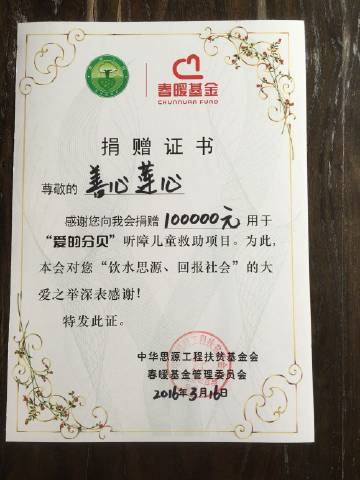 春暖基金
CHUNNUAN FUND
捐赠证书
尊敬的 善心莲心
感谢您向我会捐赠 100000元 用于
“爱的分贝”听障儿童救助项目。为此，
本会对您“饮水思源、回报社会”的大
爱之举深表感谢！
特发此证。
中华思源工程扶贫基金会
春暖基金管理委员会
2016年3月16日